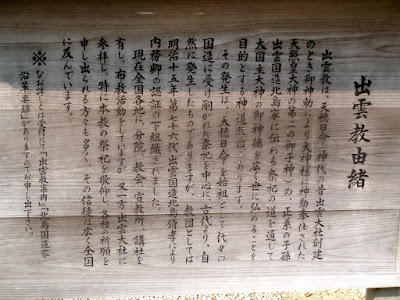 出雲教由緒
出雲教は、天穂日命(神代の昔出雲大社創建
のとき御神勅により大神様に神勤奉仕された
天照皇大神の第二の御子神)の、正系の子孫
出雲国造北島家に伝わる祭祀の道を通して
大国主大神の御神徳を広く世に弘めることを
目的とする神道教団であります。
その発生は、天穂日命を始祖として代々の
国造に受け嗣がれた祭祀を中心に、古代より、自
然に発生したものでありますが、教団としては
明治十五年第七十六代出雲国造北島脩孝により
内務卿の認証の下組織されました。
現在全国各地に、分院、教会、宣教所、講社を
有し、布教活動をしていますが、又一方出雲大社に
参拝し、特に本教の祭祀を敬仰し、各種の祈願を
申し出られる方々も多く、その信徒は広く全国
に及んでいます。
※なおくわしくは受付に『出雲教案内』『北島国造家
沿革要録』がありますのでお申し出下さい。